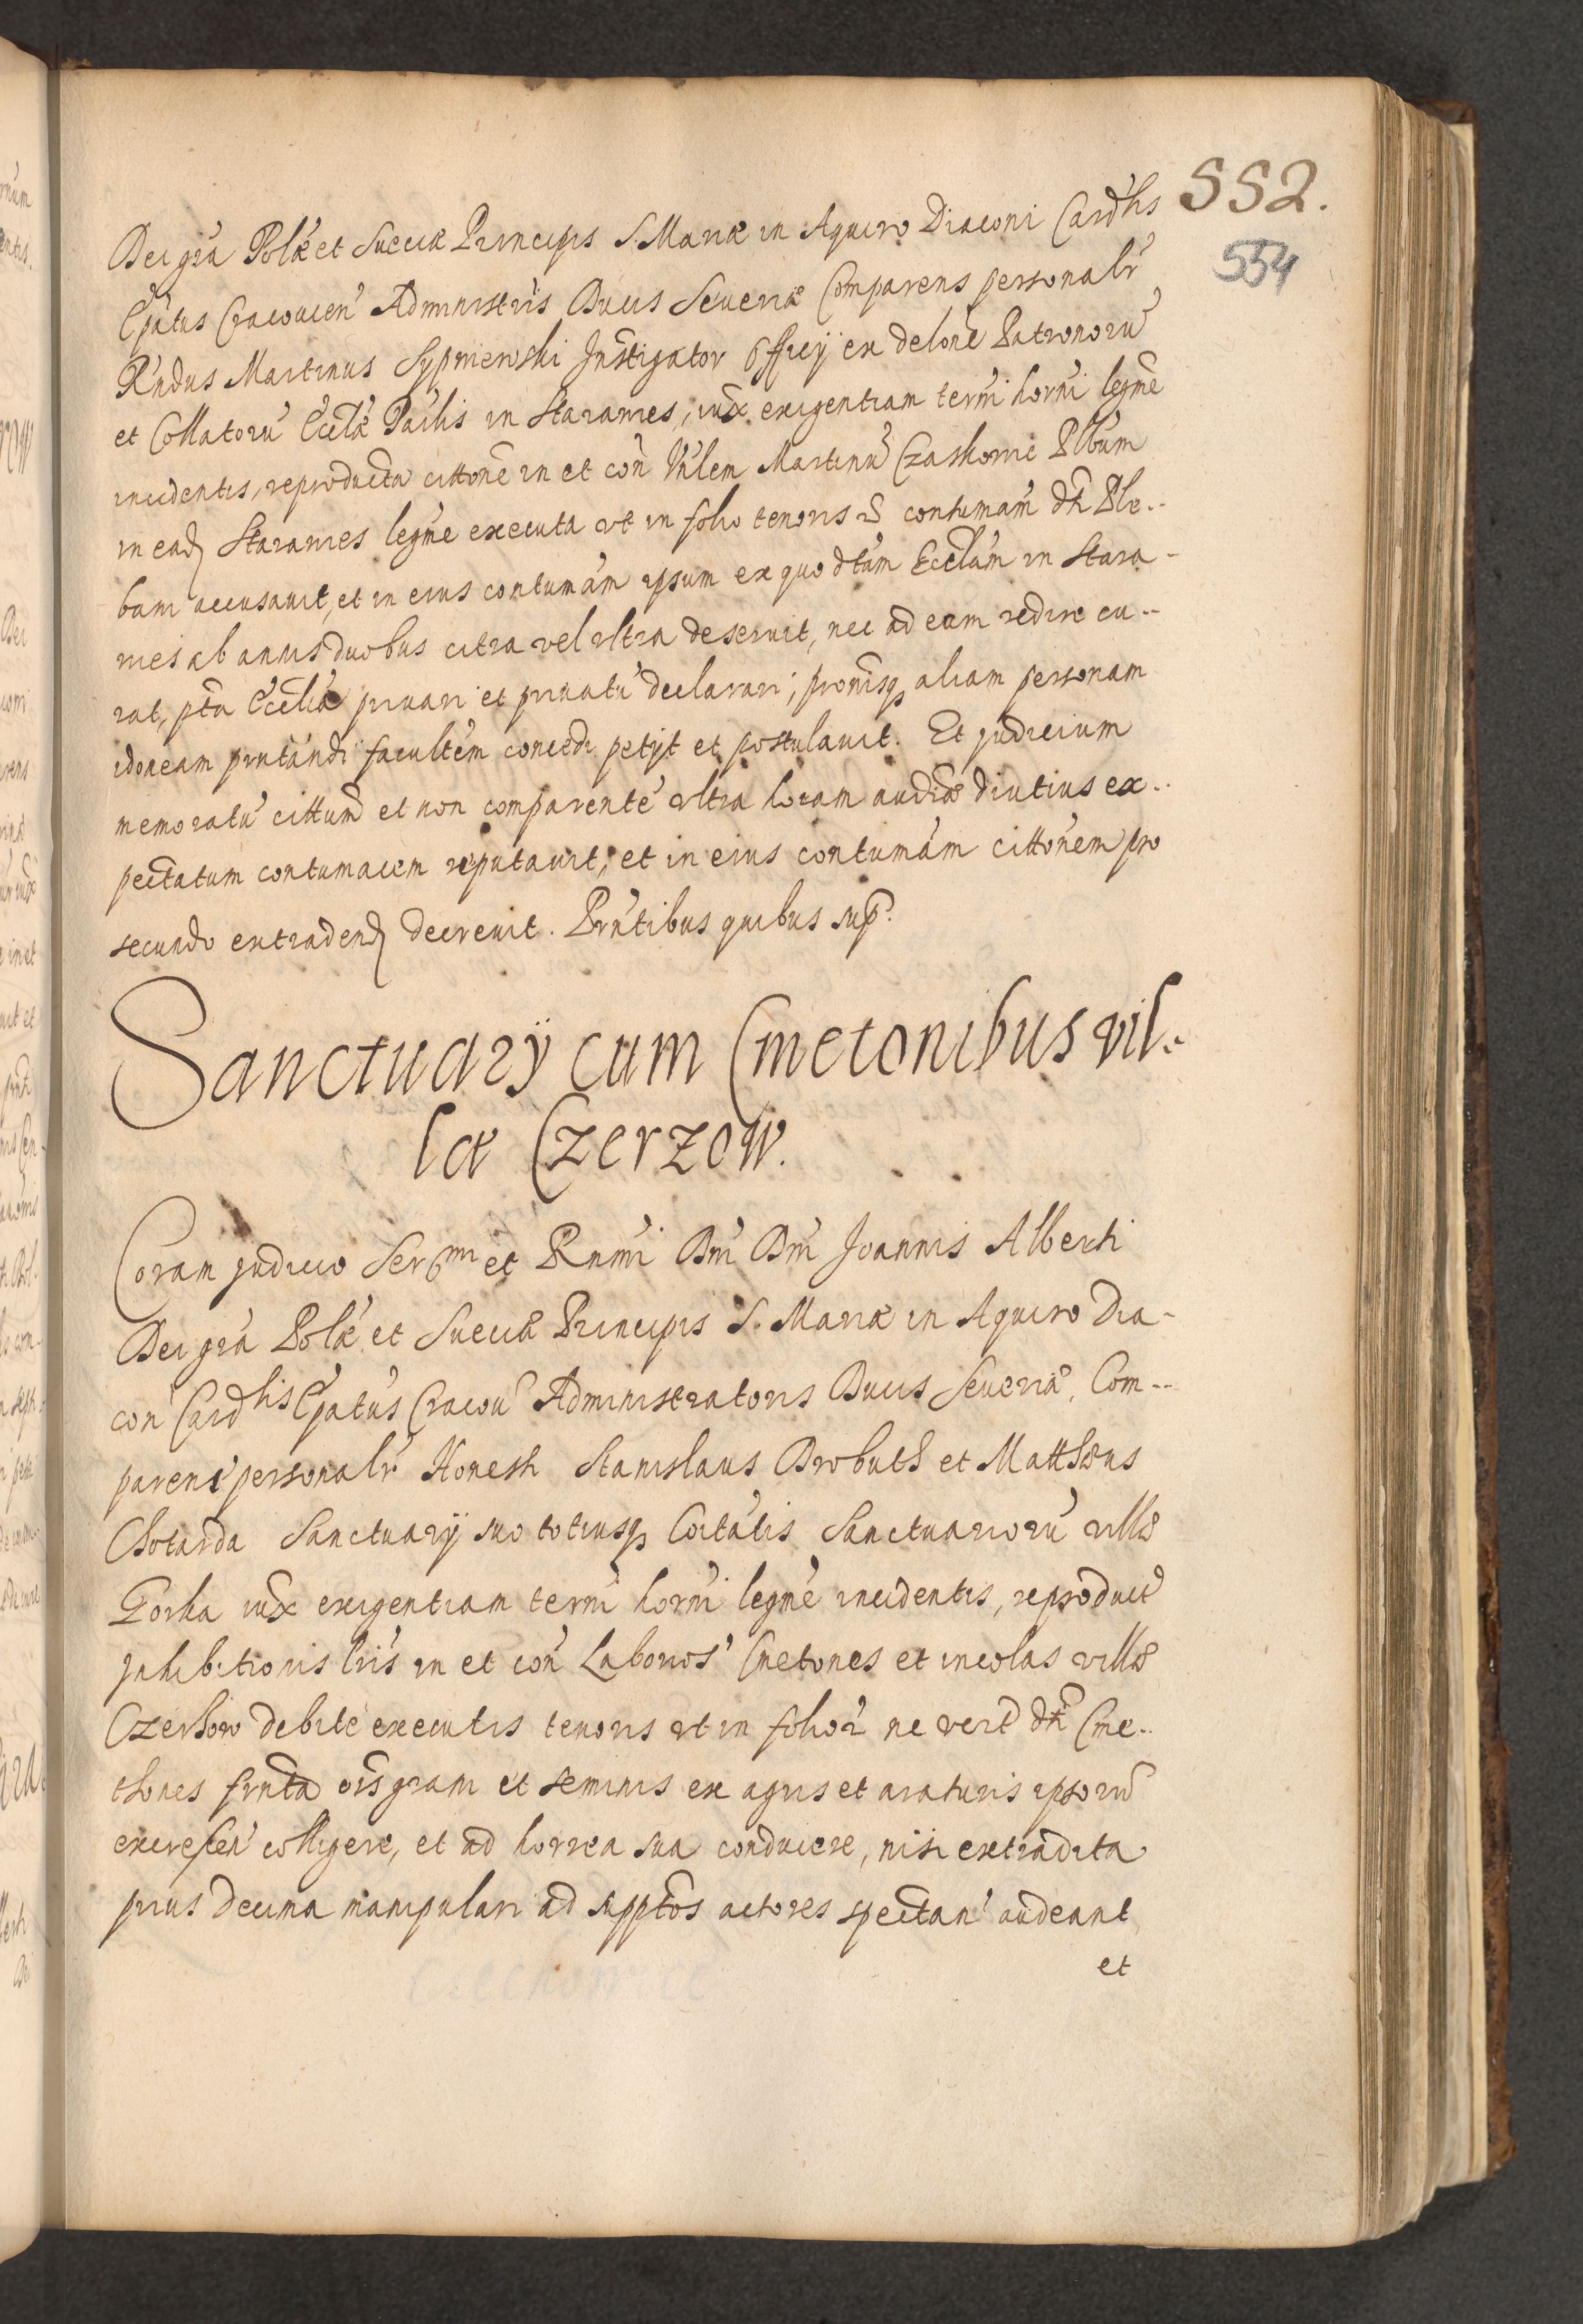 552.
554
Dei gra Polæ et Sueciæ Principis S. Mariæ in Aquiro Diaconi Cardlis
Epatus Cracovien Administris Ducis Severiæ Comparens personalr
Rndus Martinus Sypniewski Instigator Officij ex delone Patronoru
et Collatoru Eccla Pailis in Starawies, iux exigentiam termi horni legme
incidentis, reproducta cittone in et con Vnlem Martinu Czaskowic Plbum
in ead Starawies legme executa vt in folio tenoris S contumam dti Ple-
bani accusavit, et in eius contumam ipsum ex quo dtam Ecclam in Stara-
wies ab annis duobus citra vel vltra deseruit, nec ad eam redire cu-
rat, pta Ecclia privari et privatu declarari, promisq aliam personam
idoneam pntandi facultem concedi petijt et postulavit. Et judicium
memoratu cittum et non comparente vltra horam audiæ diutius ex-
pectatum contumacem reputavit, et in eius contumam cittonem pro
secundo extradend decrevit. Prntibus quibus sup.
Sanctuarÿ cum Cmetonibus vil-
læ Czerzow.
Coram judicio Sermi et Rnmi Dni Dni Joannis Alberti
Dei gra Polæ et Sueciæ Principis S. Mariæ in Aquiro Dia-
con Cardlis Epatus Cracov Administratoris Ducis Severiæ. Com-
paren personalr Honesti Stanislaus Drobuth et Matthæus
Chotarda Sanctuarÿ suo totiusq Coitatis Sanctuarioru villæ
Gorka iux exigentiam termi horni legme incidentis, reproduct
inhibitionis lris in et con Laborios Cmetones et incolas villæ
Czerhow debite executis tenoris vt in folio ne vert dti Cme-
thones frnta ois grani et seminis ex agris et araturis ipsoru
excrescen colligere, et ad horrea sua conducere, nisi extradita
prius decima manipulari ad supptos actores spectan audeant
et